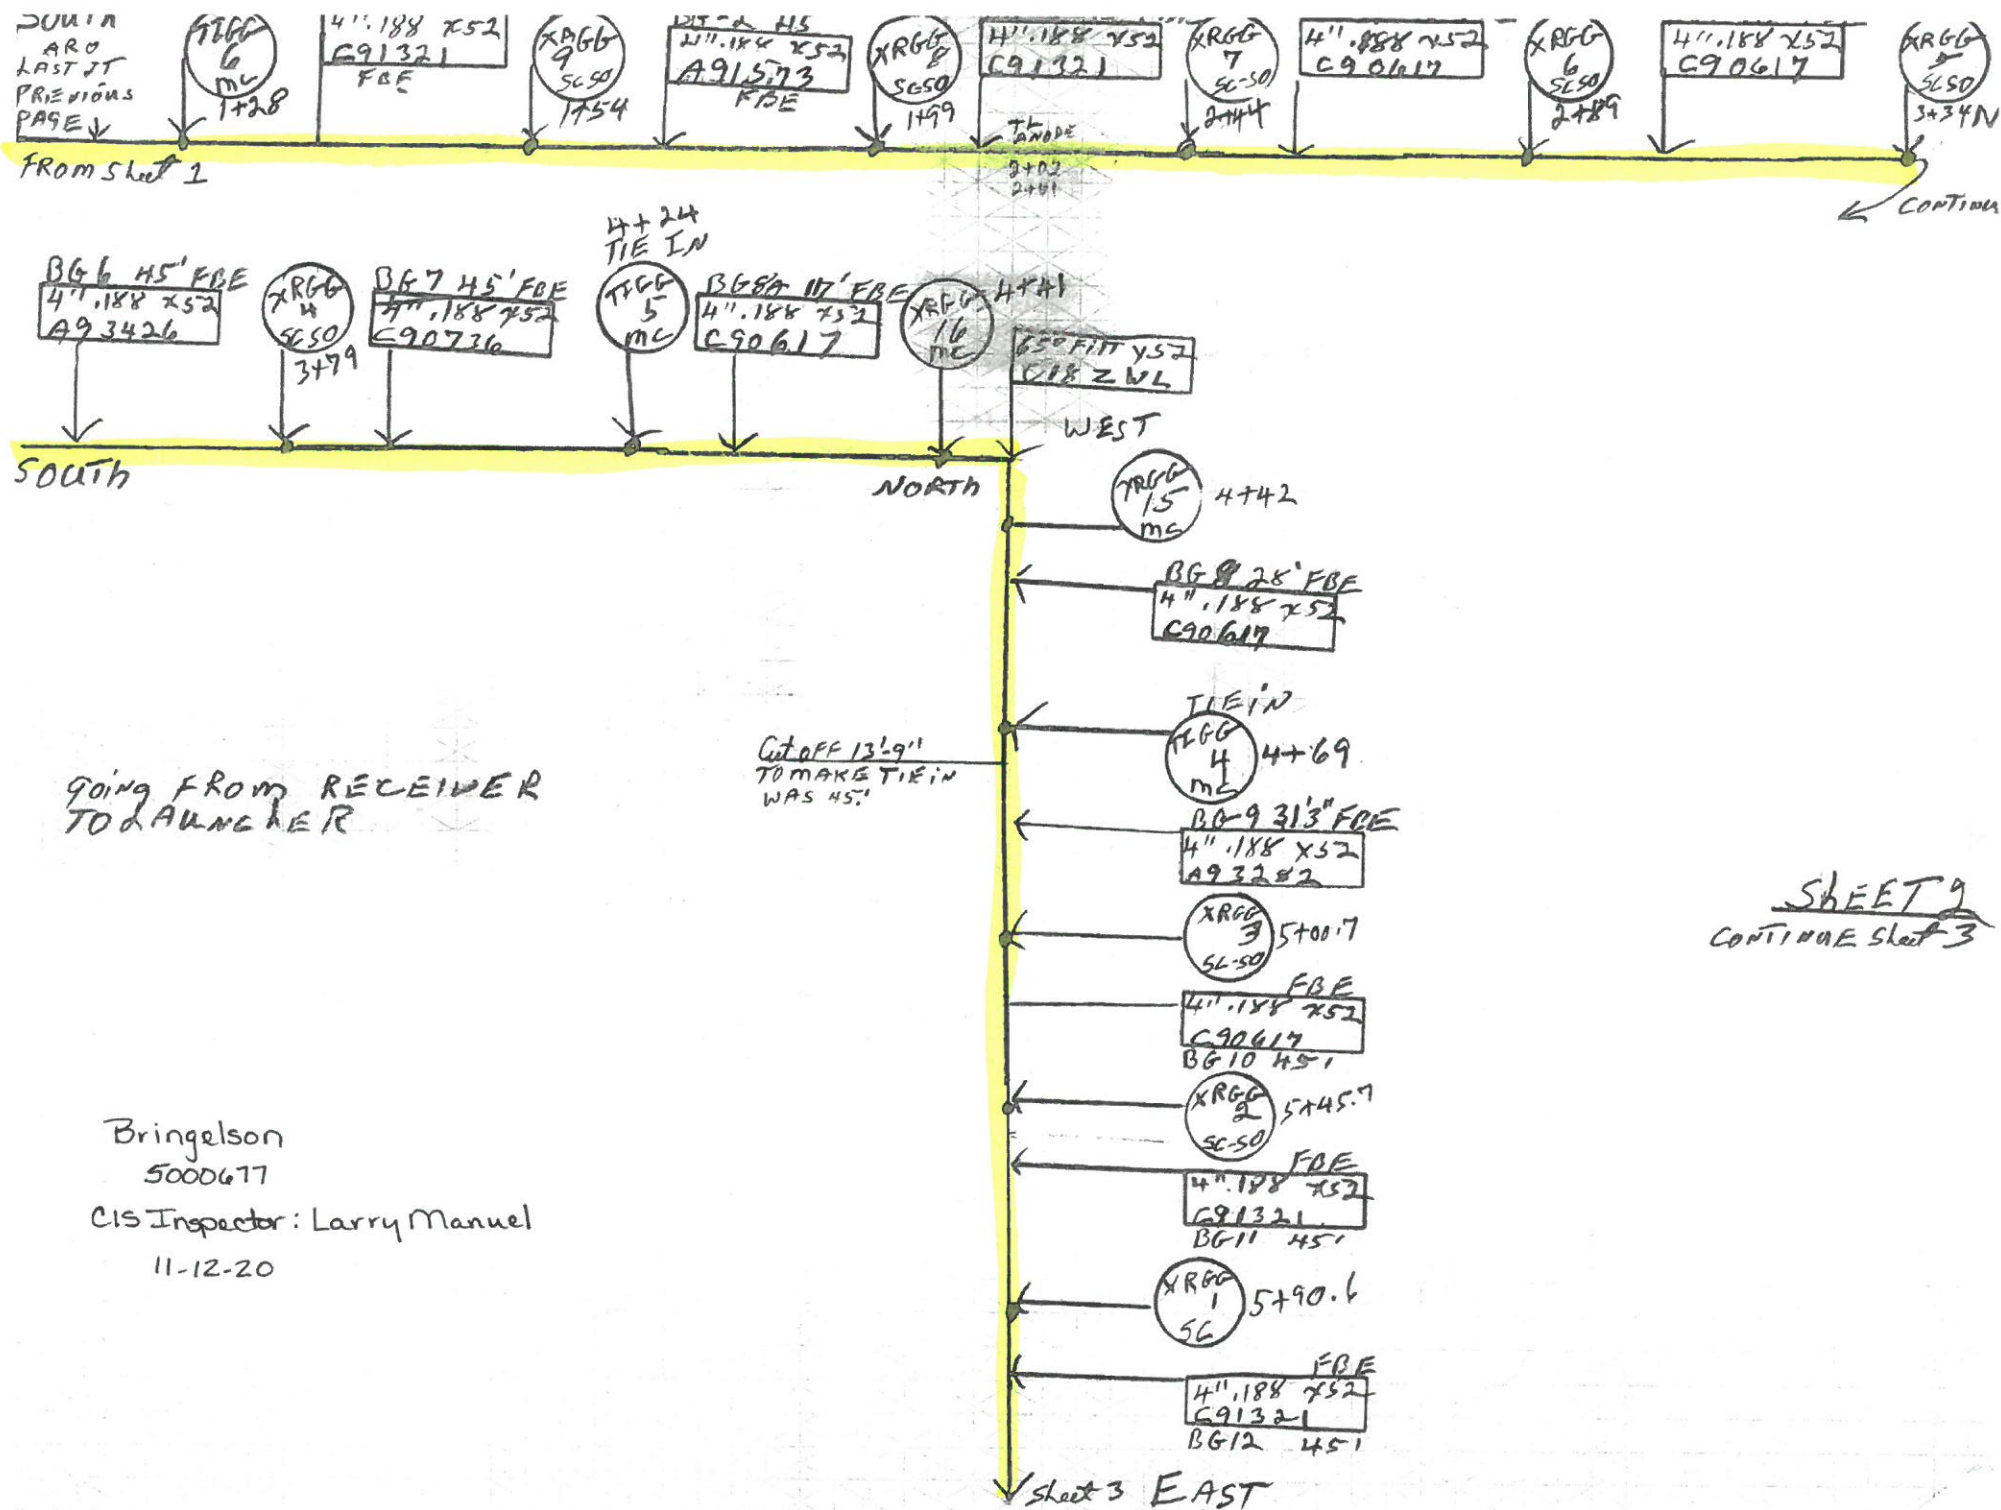 SOUTH
ARO
LAST JT
PREVIOUS
PAGE
TIGG
6
mc
1+28
4" .188 X52
C91321
FBE
XRGG
9
SCSO
1+54
4" .188 X52
A91573
FBE
XRGG
8
SCSO
1+99
4" .188 X52
C91321
ANODE
2+02
XRGG
7
SC-SO
2+44
4" .188 X52
C90617
XRGG
6
SCSO
2+89
4" .188 X52
C90617
XRGG
5
SCSO
3+34 N
FROM Sheet 1
CONTINU
BG 6 45' FBE
4" .188 X52
A93426
XRGG
4
SCSO
3+79
BG 7 45' FBE
4" .188 X52
C90736
4+24
TIE IN
TIGG
5
mc
BG8A 17' FBE
4" .188 X52
C90617
XRGG
16
mc
4+41
FITT Y52
SOUTH
NORTH
WEST
XRGG
15
mc
4+42
BG 8 28' FBE
4" .188 X52
C90617
TIE IN
TIGG
4
mc
4+69
Cut OFF 13'-9"
TO MAKE TIE IN
WAS 45'
BG-9 31'3" FBE
4" .188 X52
XRGG
3
SC-SO
5+00.7
FBE
4" .188 X52
C90617
BG 10 45'
XRGG
2
SC-SO
5+45.7
FBE
4" .188 X52
C91321
BG 11 45'
XRGG
1
SC
5+90.6
FBE
4" .188 X52
C91321
BG12 45'
Sheet 3 EAST
going FROM RECEIVER
TO LAUNCHER
SHEET 2
CONTINUE Sheet 3
Bringelson
5000677
CIS Inspector: Larry Manuel
11-12-20